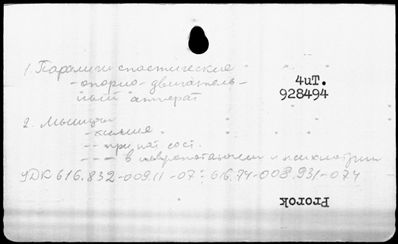 1. Параличи спастические -
- опорно-двигатель-
ный аппарат
4иТ.
928494
2. Мышцы -
- -- при пат. сост.
- -- в невропатологии и психиатрии
УДК 616.832-009.11-07:616.74-008.931-074
Prorok